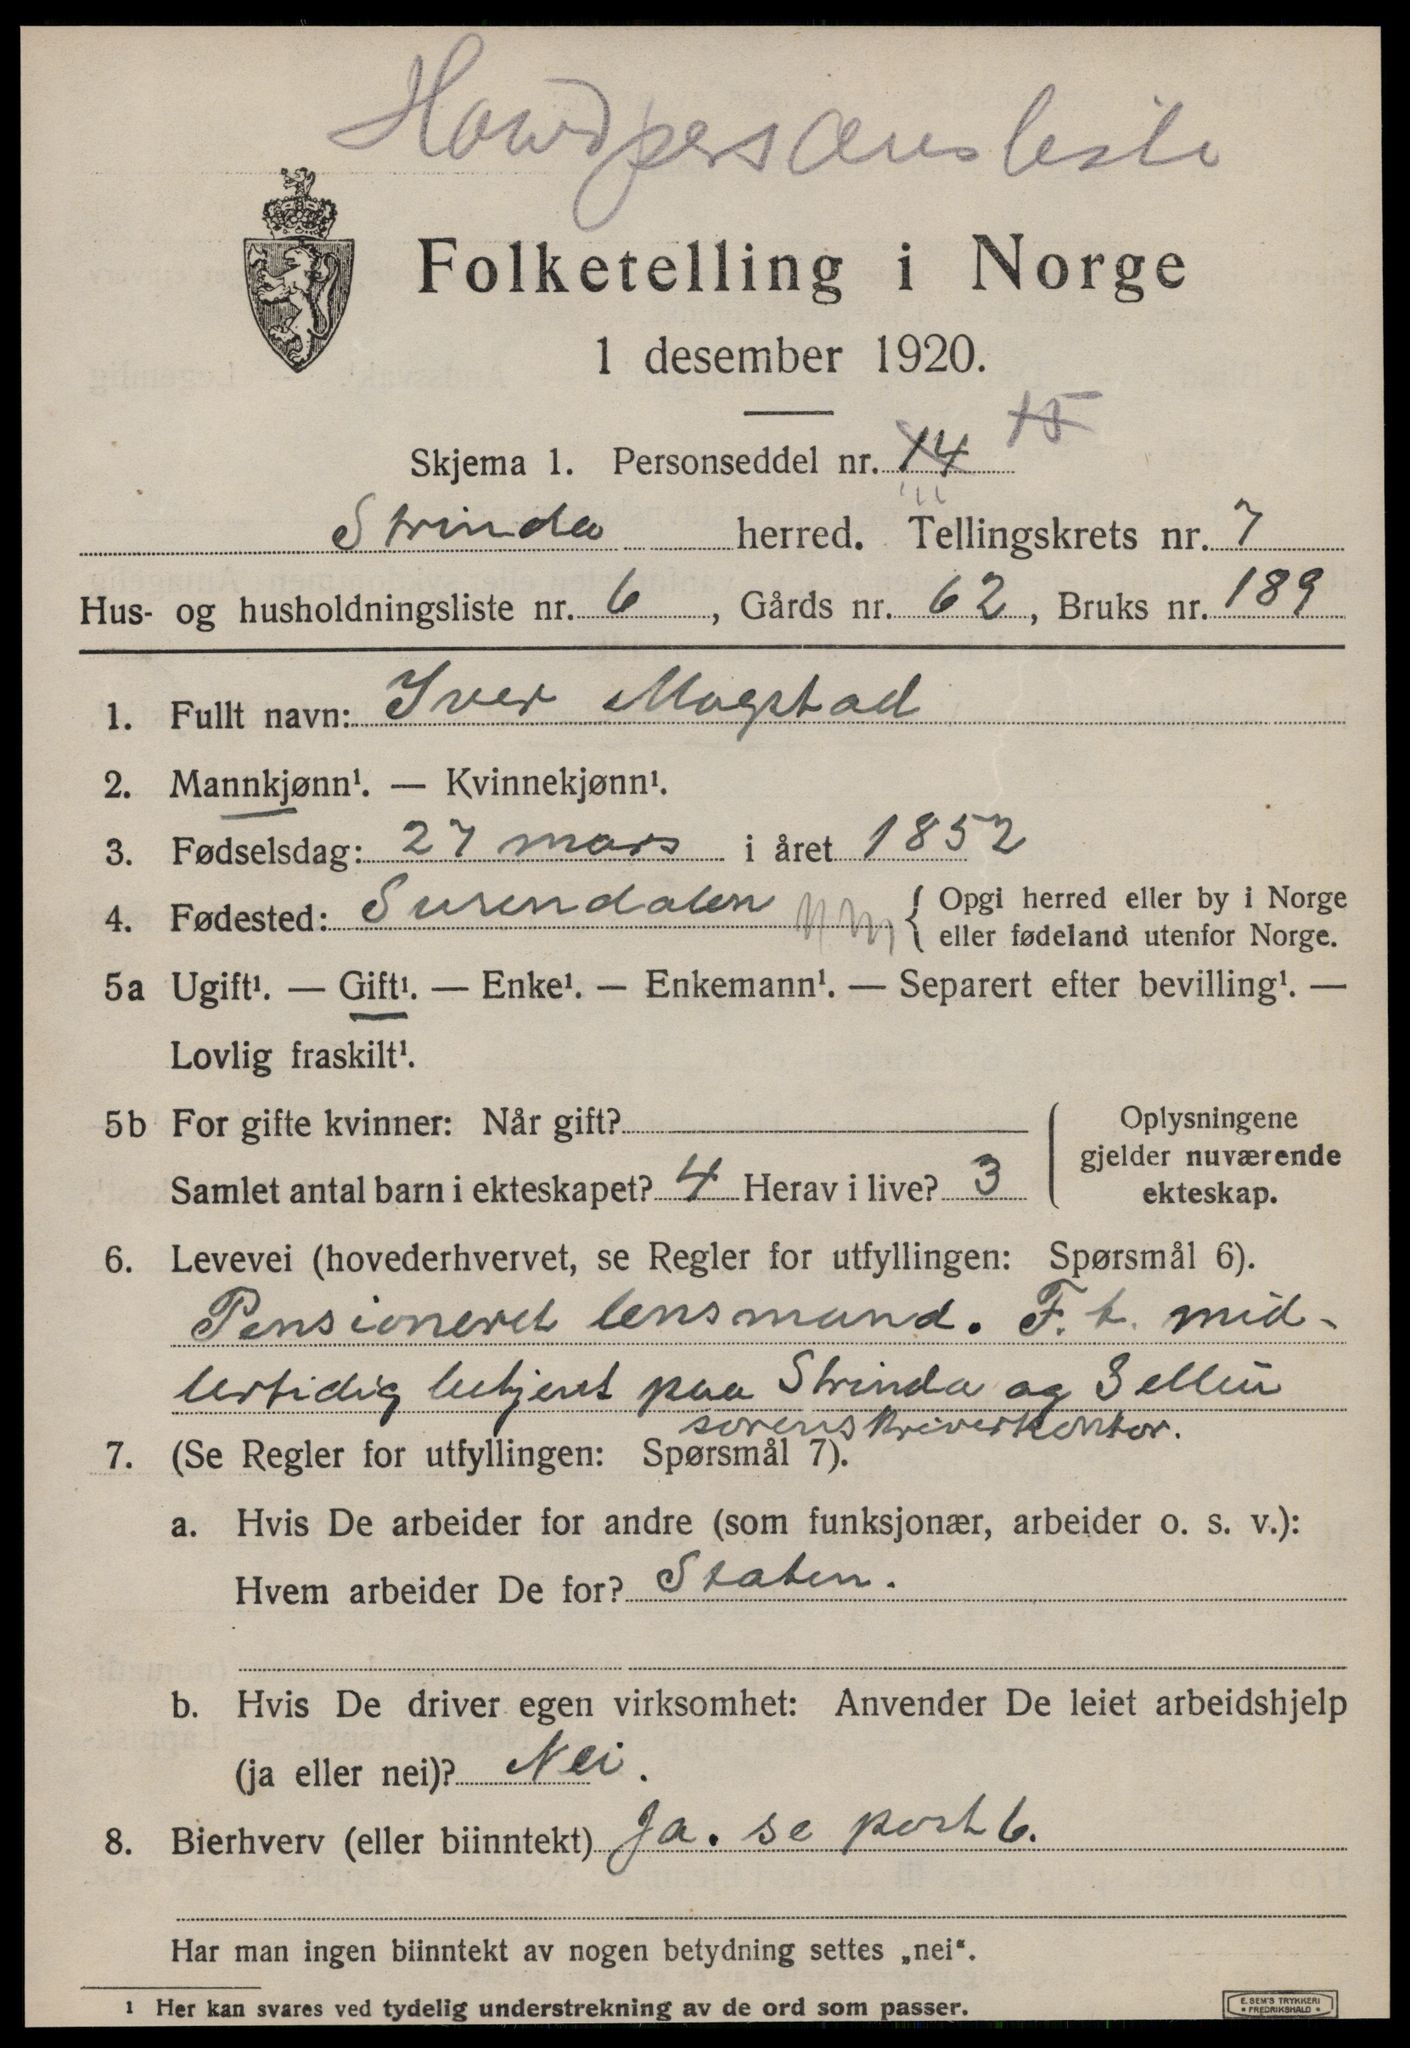 Folketelling i Norge
1 desember 1920.
Skjema 1. Personseddel nr. 14 15
Strinda herred. Tellingskrets nr. 7
Hus- og husholdningsliste nr. 6, Gårds nr. 62, Bruks nr. 189
1. Fullt navn: Iver Mogstad
2. Mannkjønn¹. — Kvinnekjønn¹.
3. Fødselsdag: 27 mars i året 1852
4. Fødested: Surendalen { Opgi herred eller by i Norge
eller fødeland utenfor Norge.
5a Ugift¹. — Gift¹. — Enke¹. — Enkemann¹. — Separert efter bevilling¹. —
Lovlig fraskilt¹.
5b For gifte kvinner: Når gift?
Samlet antal barn i ekteskapet? 4 Herav i live? 3
Oplysningene
gjelder nuværende
ekteskap.
6. Levevei (hovederhvervet, se Regler for utfyllingen: Spørsmål 6).
Pensioneret lensmand. F. t. mid-
lertidig betjent paa Strinda og Selbu
sorenskriverkontor.
7. (Se Regler for utfyllingen: Spørsmål 7).
a. Hvis De arbeider for andre (som funksjonær, arbeider o. s. v.):
Hvem arbeider De for? Staten.
b. Hvis De driver egen virksomhet: Anvender De leiet arbeidshjelp
(ja eller nei)? Nei.
8. Bierhverv (eller biinntekt) Ja. se post 6.
Har man ingen biinntekt av nogen betydning settes „nei“.
1 Her kan svares ved tydelig understrekning av de ord som passer.
E. SEM'S TRYKKERI
FREDRIKSHALD